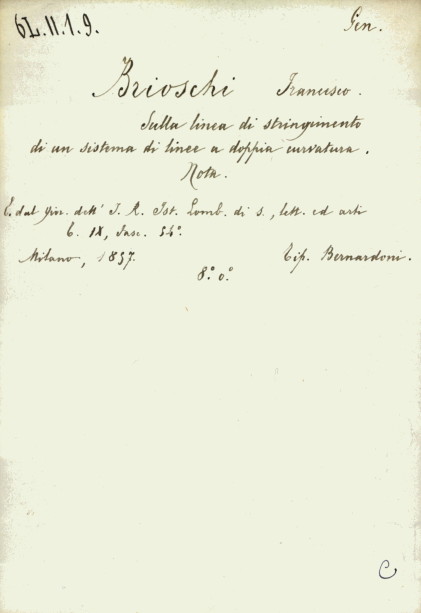 6L.11.1.9.
Gen.
Brioschi Francesco.
Sulla linea di stringimento
di un sistema di linee a doppia curvatura.
Nota.
E. dal gior. dell' I. R. Ist. Lomb. di s., lett. ed arti
t. IX, fasc. 54°.
Milano, 1857. Tip. Bernardoni.
8.° o.°
C